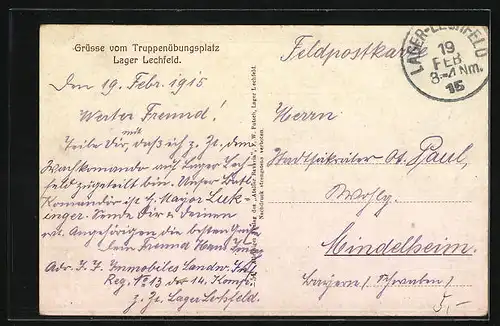 Grüsse vom Truppenübungsplatz
Lager Lechfeld.
Den 19. Febr. 1915
Werter Freund!
mit
Teile Dir, daß ich z. Zt. dem
Wachkomando auf Lager Lech-
feld zugeteilt bin. Unser Batl.
Komandör ist H. Major Luk-
inger. Sende Dir u. Deinen
Angehörigen die besten Grüße
Dein Freund Hans
Adr. I. J. Immobiles Landw. Inf.
Reg. No 13 14. Komp.
z. Zt. Lager Lechfeld.
Verlag des „Atelier Bavaria“, F. W. Fatsch, Lager Lechfeld.
Nachdruck strengstens verboten.
Feldpostkarte
LAGER-LECHFELD
19
FEB
3-4 Nm.
15
Herrn
Stadtsekretär Paul,
Wohlg.
Mindelheim.
Bayern (Schwaben)
5,-